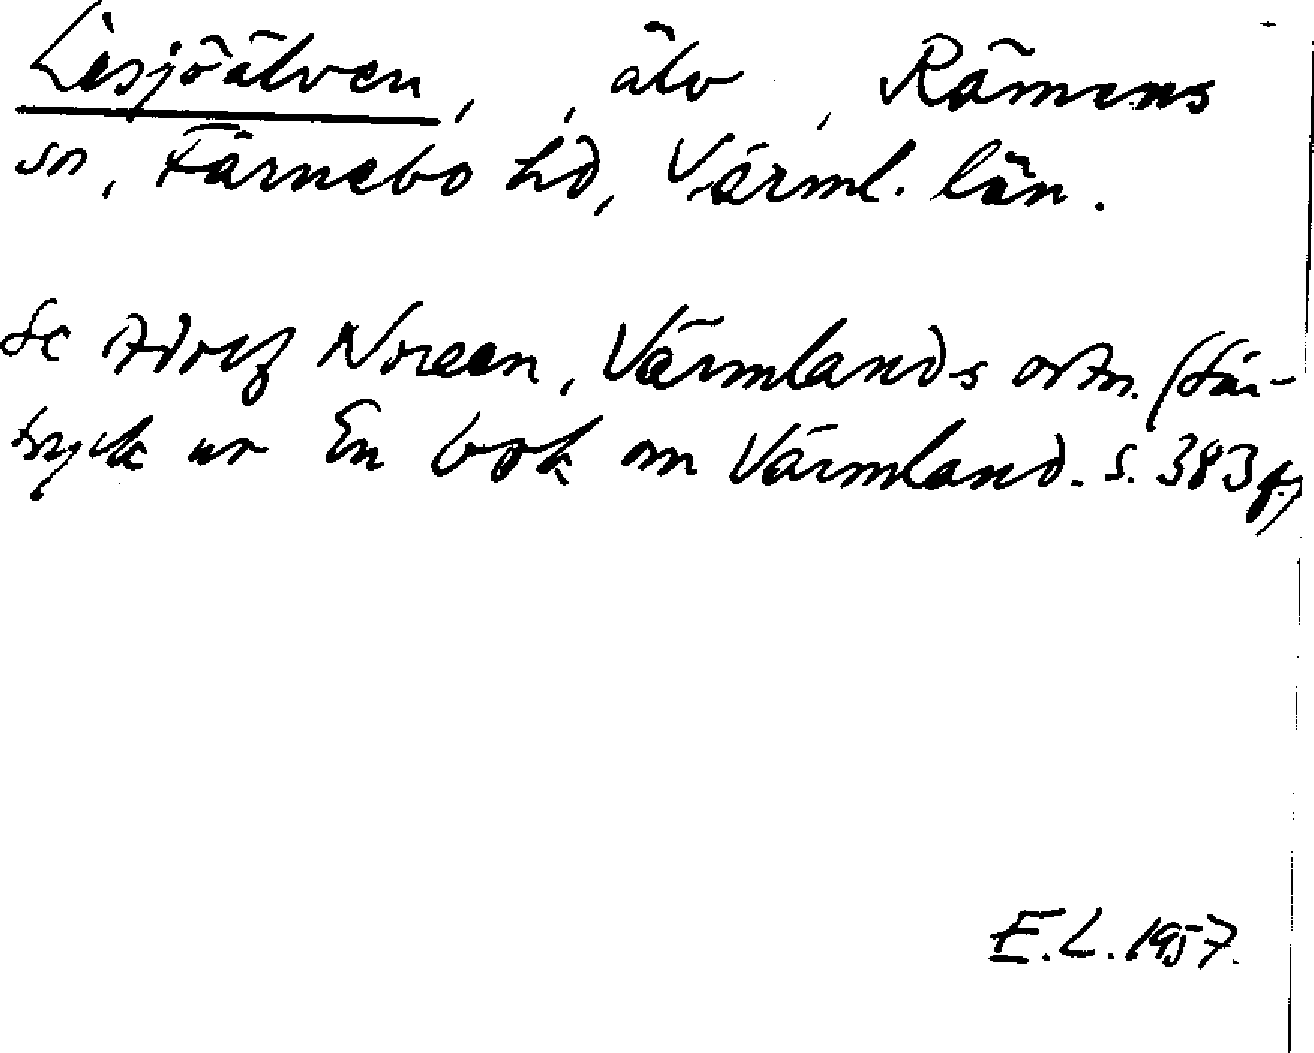 Lesjöälven, , älv , Rämens
sn, Färnebo hd, Värml. län.
Se Adolf Noreen, Värmlands ortn. (Sär-
tryck ur En bok om Värmland. s. 383 f.)
E.L. 1957.